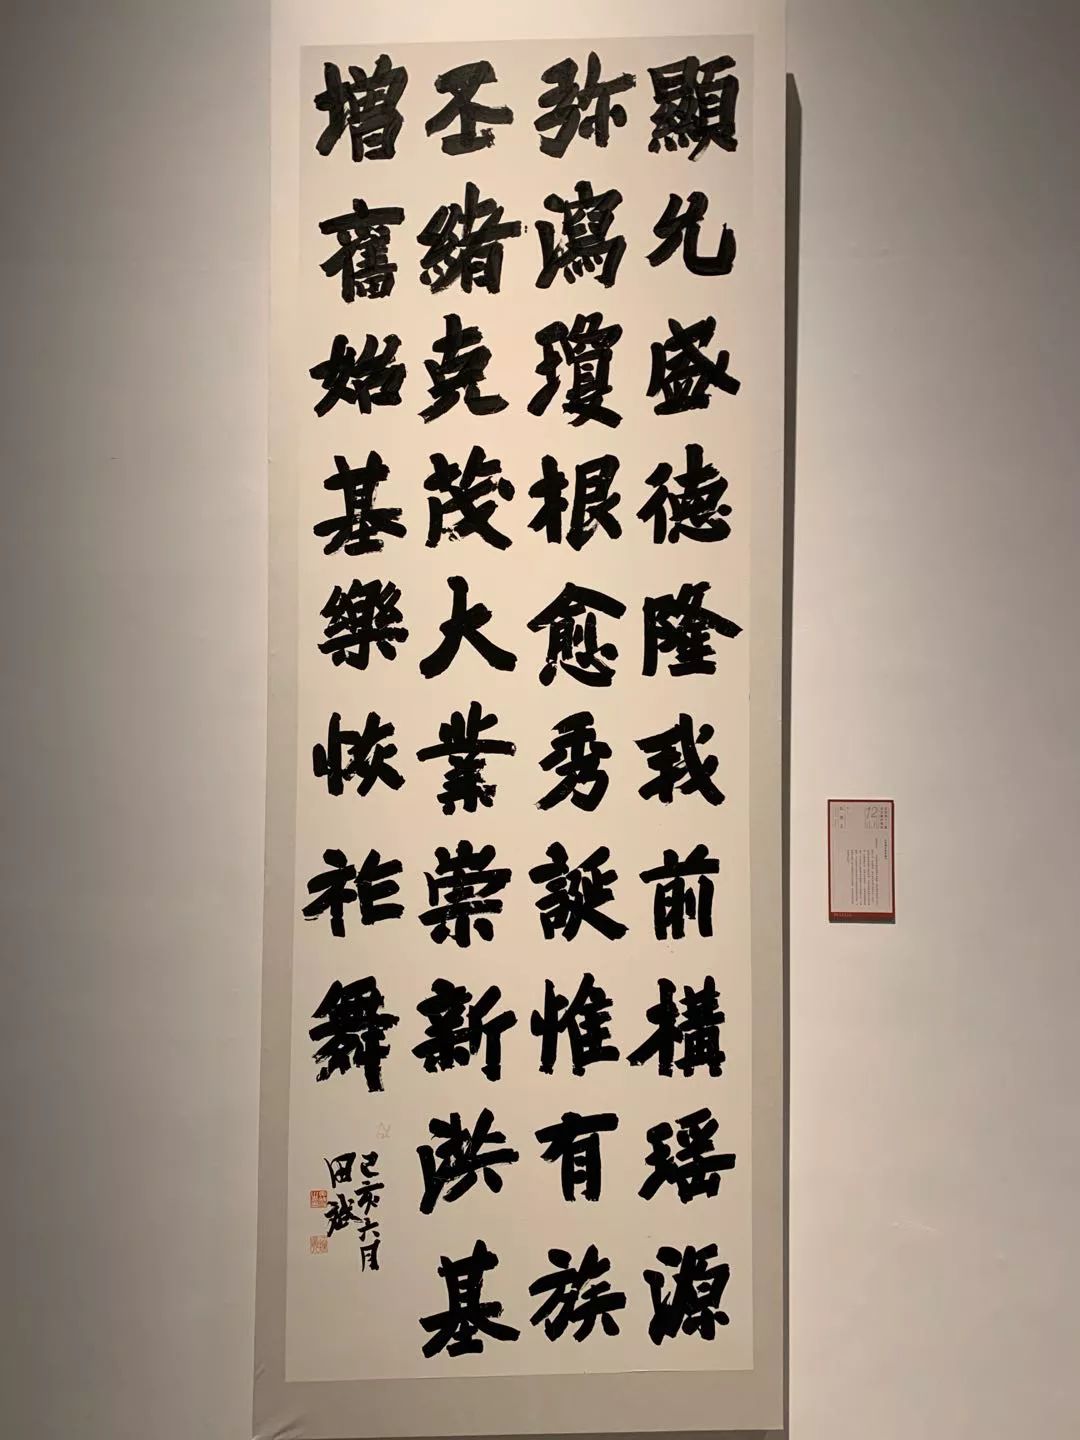 顯允盛德隆我前構瑶源
弥瀉瓊根愈秀誕惟有族
丕緒克茂大業崇新洪基
增舊始基樂恢祚舞
己亥六月
田
12